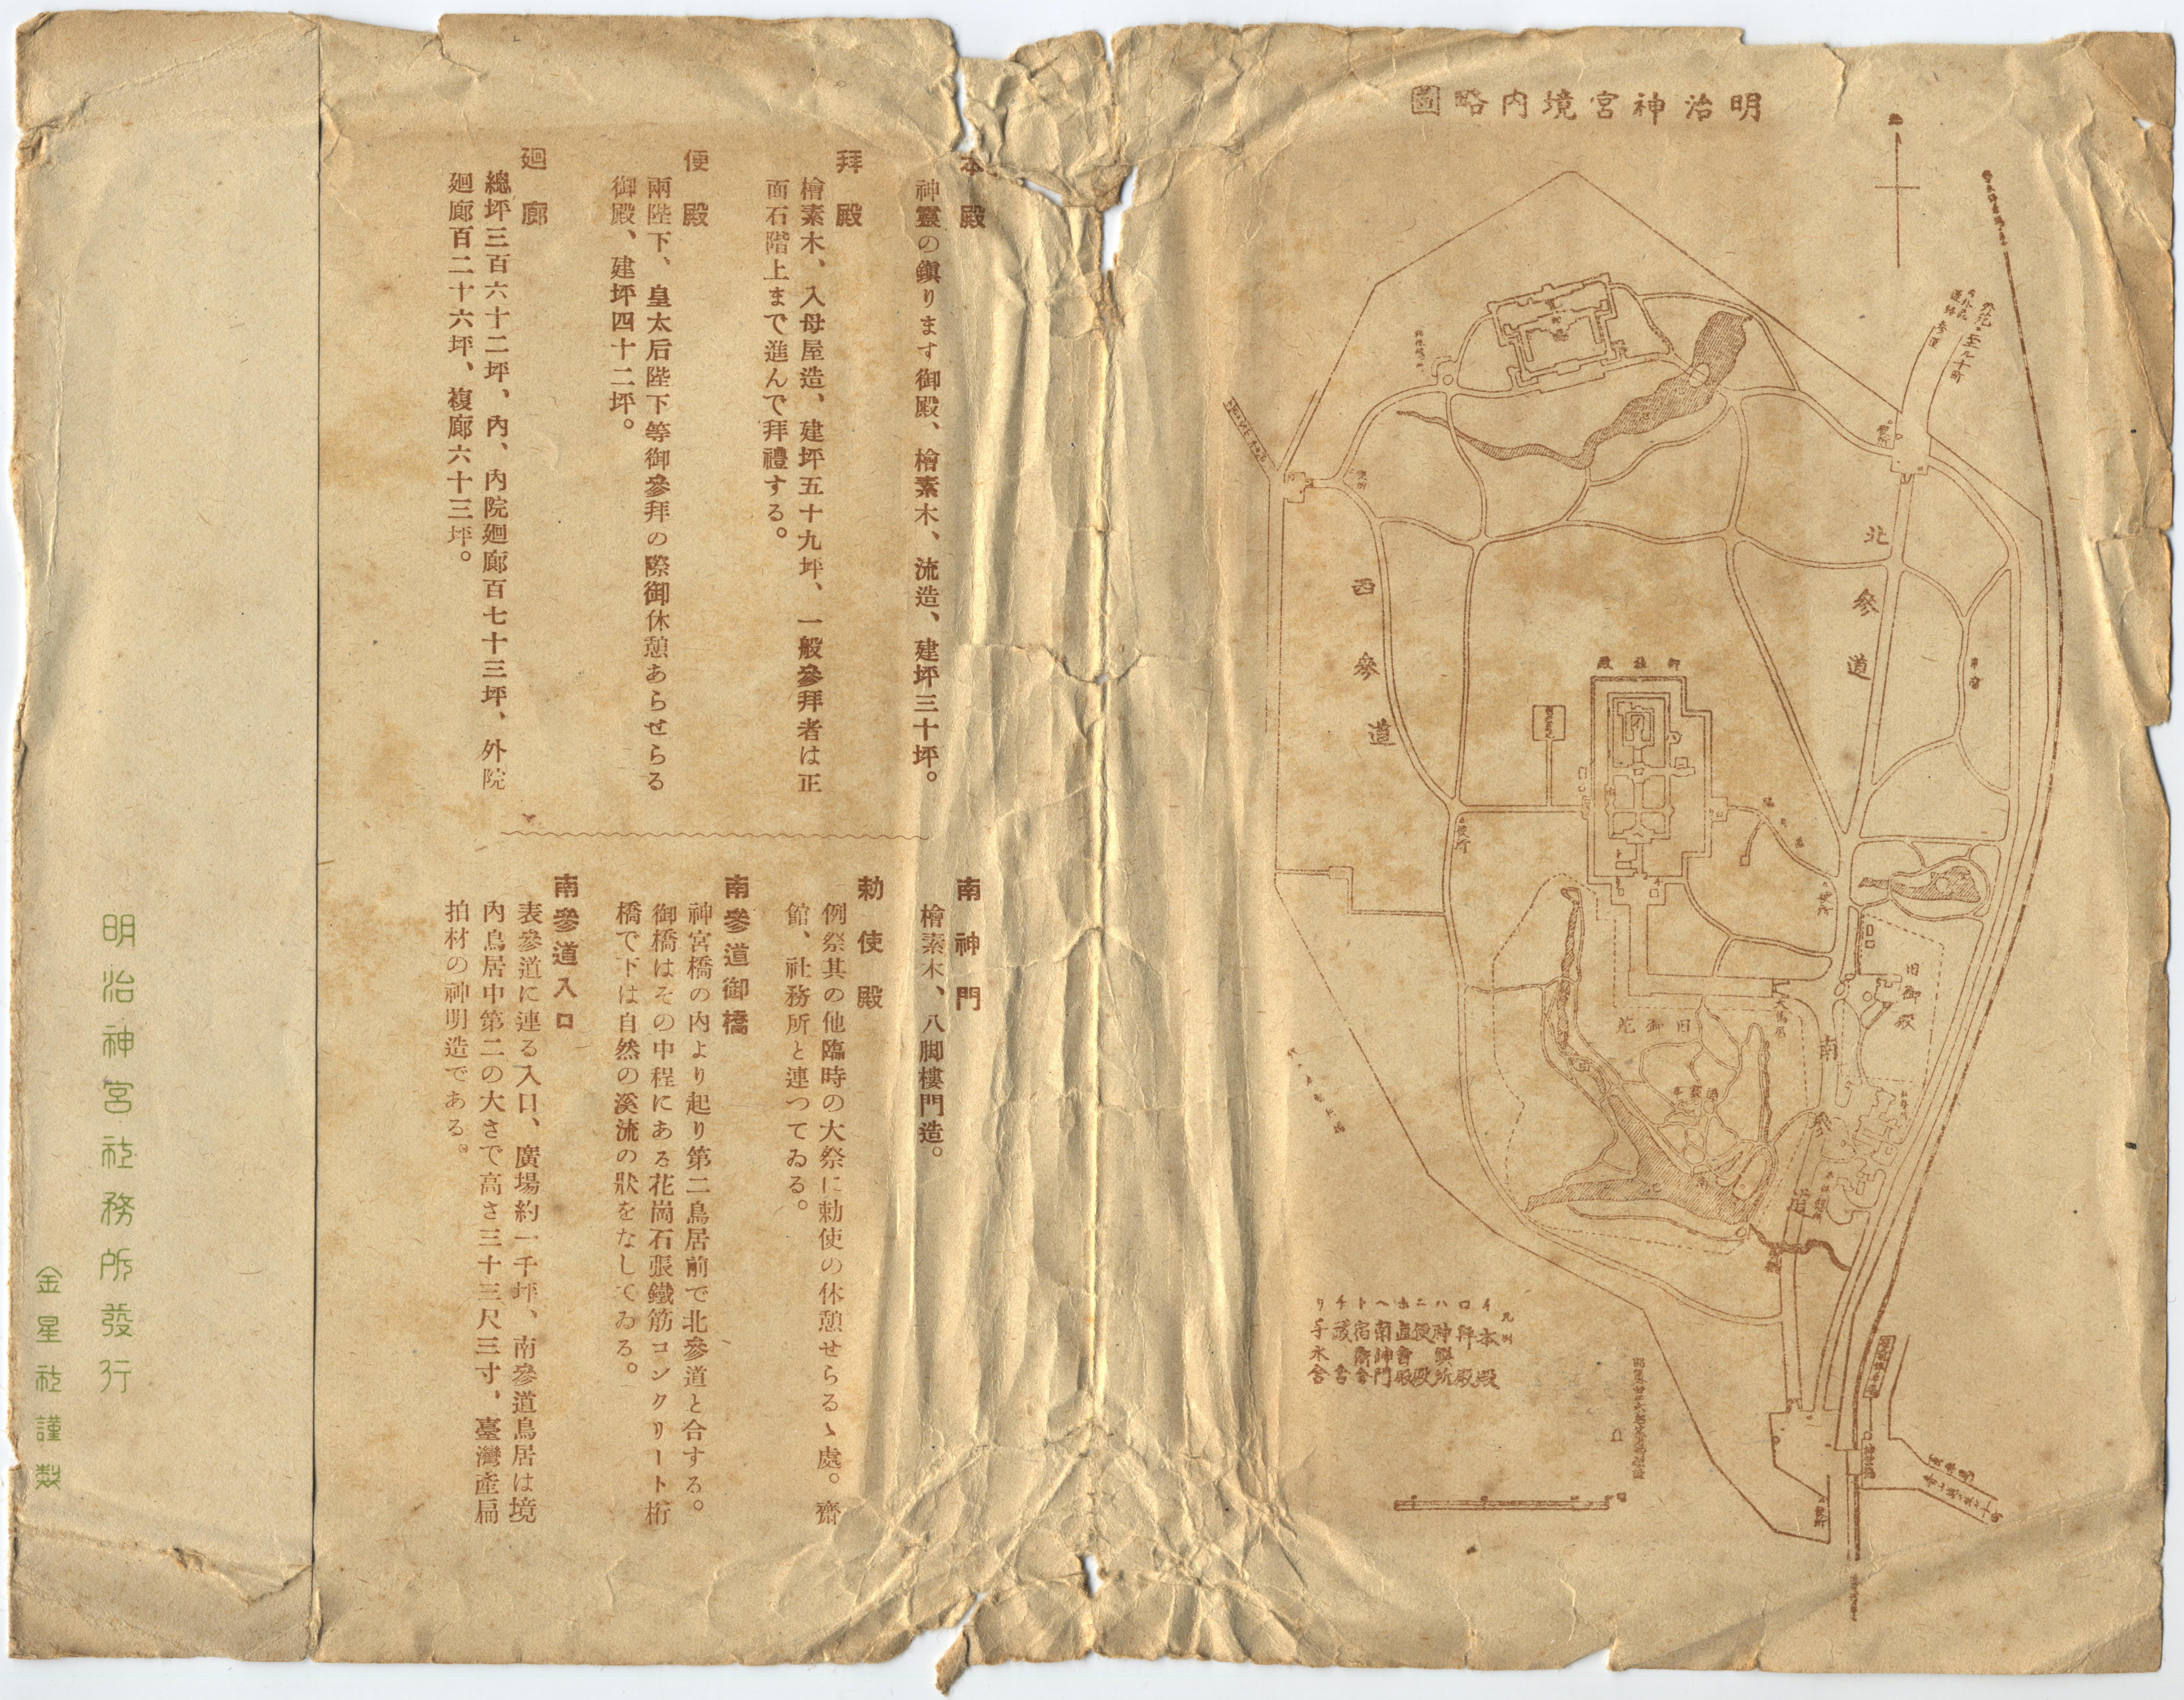 明治神宮境内略圖
北
北參道
西參道
御社殿
便所
便所
便所
便所
便所
旧御殿
大鳥居
旧御苑
南參道
凡例
イ 本殿
ロ 拜殿
ハ 神饌所
ニ 便殿
ホ 直會殿
ヘ 南神門
ト 宿衞舎
リ 手水舎
本殿
神靈の鎭ります御殿、檜素木、流造、建坪三十坪。
拜殿
檜素木、入母屋造、建坪五十九坪、一般參拜者は正
面石階上まで進んで拜禮する。
便殿
兩陛下、皇太后陛下等御參拜の際御休憩あらせらる
御殿、建坪四十二坪。
廻廊
總坪三百六十二坪、內、內院廻廊百七十三坪、外院
廻廊百二十六坪、複廊六十三坪。
南神門
檜素木、八脚樓門造。
勅使殿
例祭其の他臨時の大祭に勅使の休憩せらるゝ處。齋
館、社務所と連つてゐる。
南參道御橋
神宮橋の內より起り第二鳥居前で北參道と合する。
御橋はその中程にある花崗石張鐵筋コンクリート桁
橋で下は自然の溪流の狀をなしてゐる。
南參道入口
表參道に連る入口、廣場約一千坪、南參道鳥居は境
內鳥居中第二の大さで高さ三十三尺三寸，臺灣產扁
拍材の神明造である。
明治神宮社務所發行
金星社謹製